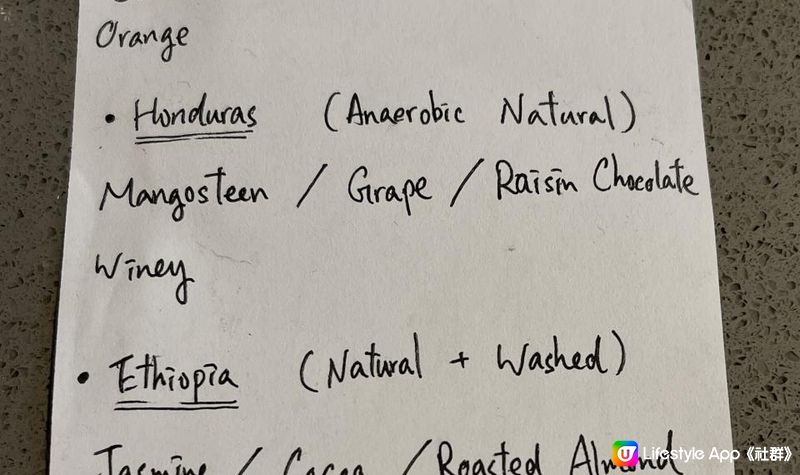 Orange
• Honduras (Anaerobic Natural)
Mangosteen / Grape / Raisin Chocolate
Winey
• Ethiopia (Natural + Washed)
Jasmine / Cocoa / Roasted Almond
U Lifestyle App《社群》